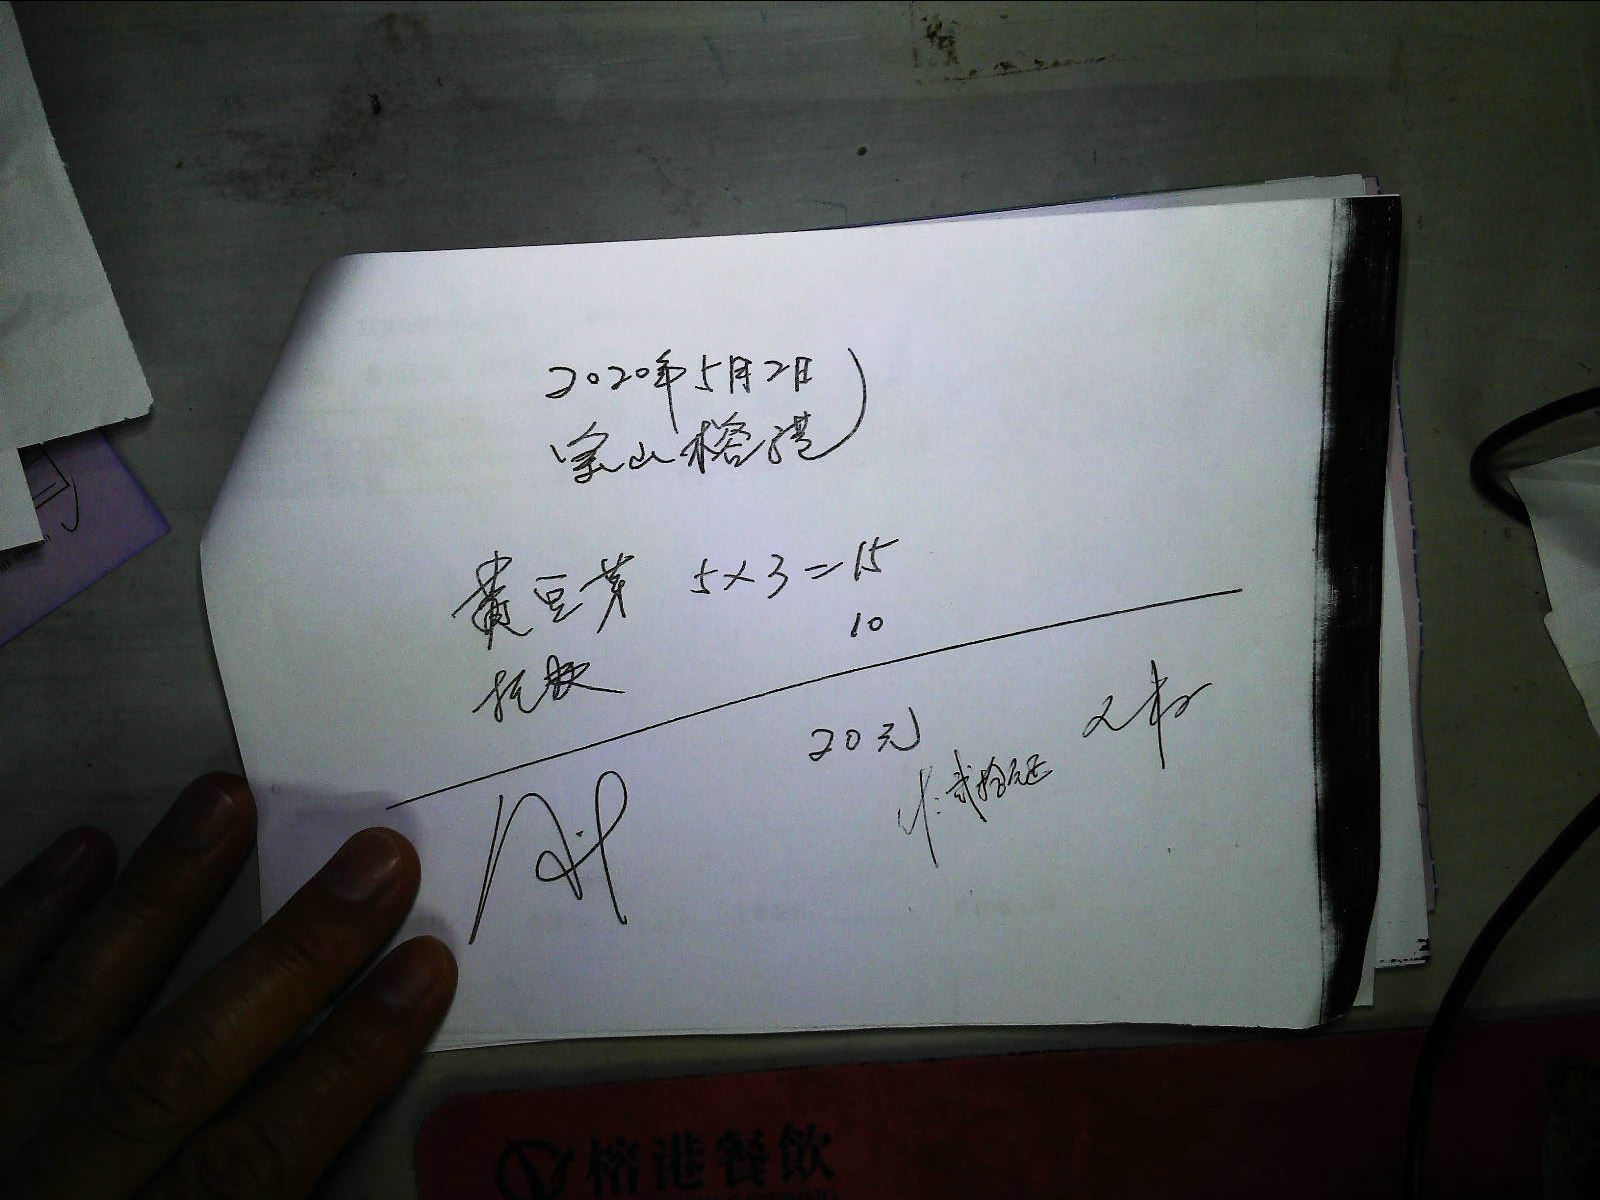 2020年5月2日
宝山榕港
黄豆芽 5×3=15
10
20元
贰拾元正
榕港餐飲